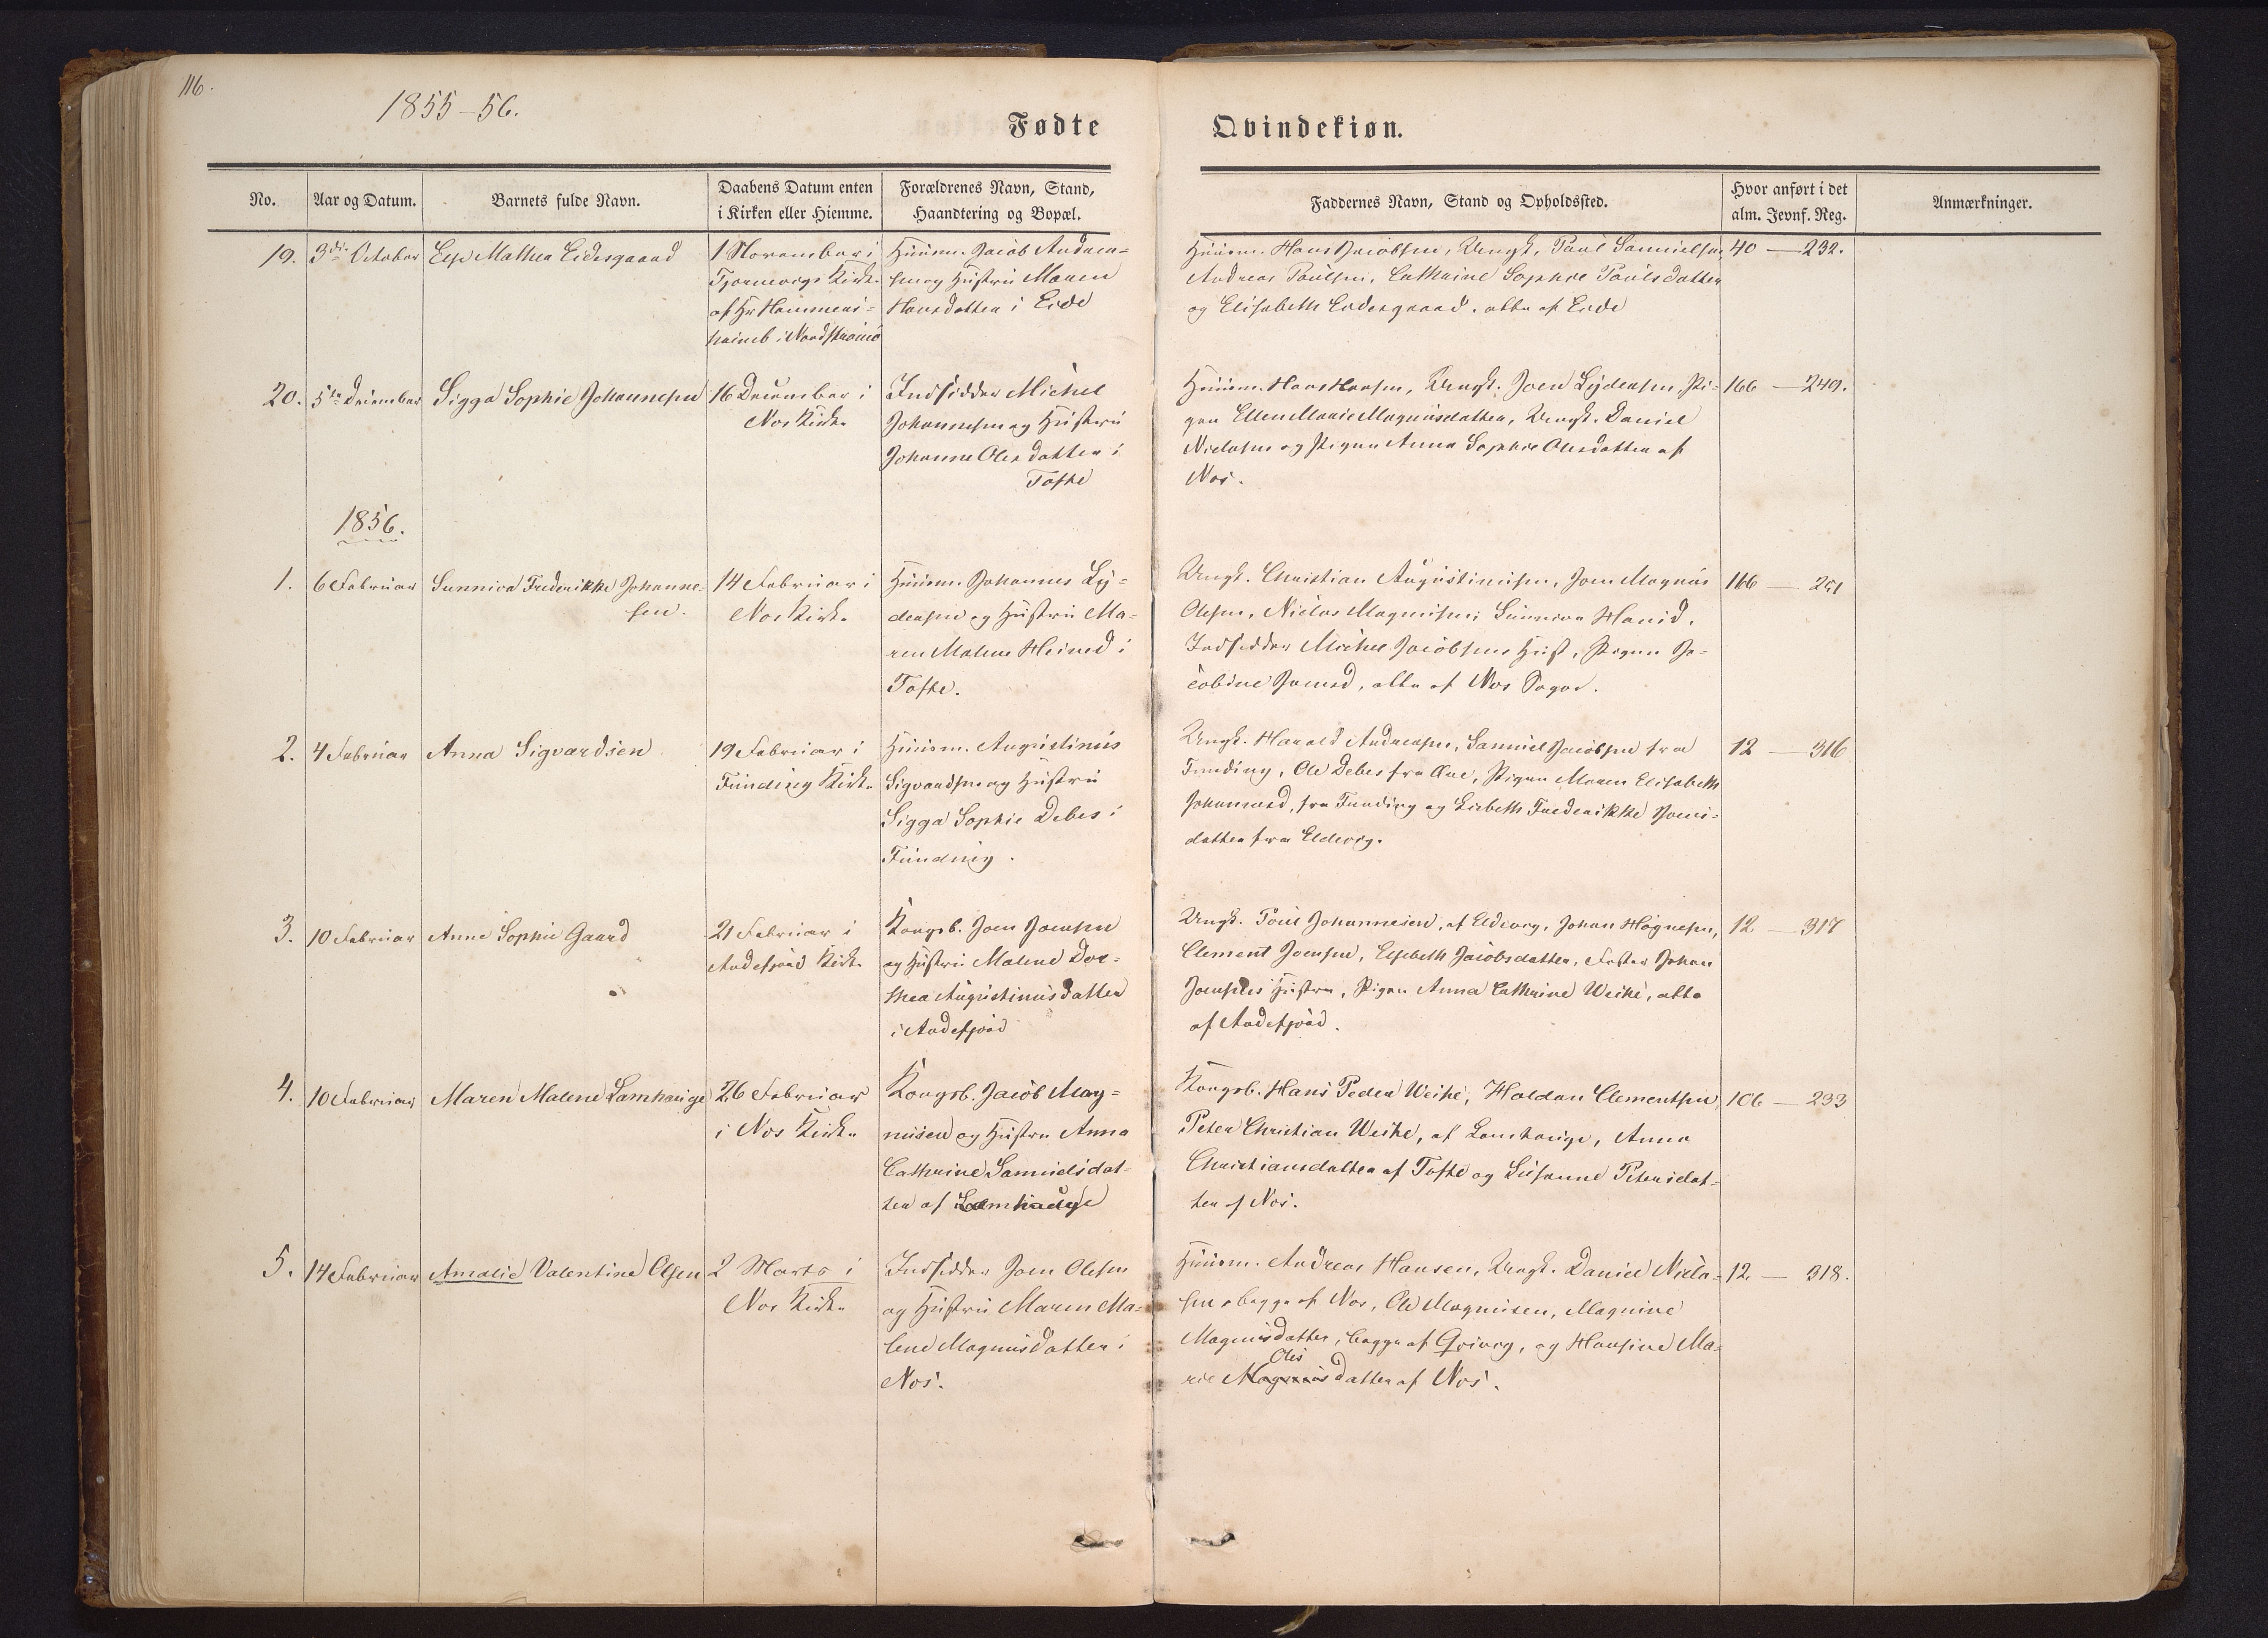 116.
1855-56.
Fødte
Qvindekiøn.
No.
Aar og Datum.
Barnets fulde Navn.
Daabens Datum enten
i Kirken eller Hiemme.
Forældrenes Navn, Stand,
Haandtering og Bopæl.
Faddernes Navn, Stand og Opholdssted.
Hvor anført i det
alm. Jevnf. Reg.
Anmærkninger.
19.
3die October
Else Mathea Eidesgaard
1 November i
Tjørnevigs Kirke
af Hr Hammers-
haimb i Nordstrømø
Huusm. Jacob Andrea-
sen og Hustru Maren
Hansdatter i Eide
Huusm. Hans Jacobsen, Ungk. Poul Samuelsen,
Andreas Poulsen, Cathrine Sophie Poulsdatter
og Elisabeth Eidesgaard, alle af Eide
40 — 232.
20.
5te December
Sigga Sophie Johannesen
16 December i
Næs Kirke
Indsidder Michel
Johannesen og Hustru
Johanne Olesdatter i
Tofte
Huusm. Hans Hansen, Ungk. Joen Lydersen, Pi-
gen Ellen Marie Magnusdatter, Ungk. Daniel
Niclasen og Pigen Anna Sophie Olesdatter af
Næs.
166 — 249.
1856.
1.
6 Februar
Sunniva Frederikke Johanne-
sen.
14 Februar i
Næs Kirke
Huusm. Johannes Ly-
dersen og Hustru Ma-
ren Malene Heined i
Tofte.
Ungk. Christian Augustinusen, Joen Magnus
Olesen, Niclas Magnusen, Sunniva Hansd.
Indsidder Michel Jacobsens Hust, Pigen Ja-
cobine Joensd, alle af Næs Sogn.
166 — 251
2.
4 Februar
Anna Sigvardsen
19 Februar i
Funding Kirke
Huusm. Augustinus
Sigvardsen og Hustru
Sigga Sophie Debes i
Funding.
Ungk. Harald Andreasen, Samuel Jacobsen fra
Funding, Ole Debes fra Øre, Pigen Maren Elisabeth
Johannesd, fra Funding og Lisbeth Frederikke Joens-
datter fra Eldevig.
12 — 316
3.
10 Februar
Anne Sophie Gaard
21 Februar i
Andefjord Kirke
Kongsb. Joen Joensen
og Hustru Malene Dor-
thea Augustinusdatter
i Andefjord
Ungk. Poul Johannesen, af Eldevig, Johan Høgnesen,
Clement Joensen, Elsebeth Jacobsdatter, Fester Johan
Joensens Hustru, Pigen Anna Cathrine Weihe, alle
af Andefjord.
12 — 317
4.
10 Februar
Maren Malene Lamhauge
26 Februar
i Næs Kirke
Kongsb. Jacob Mag-
nusen og Hustru Anna
Cathrine Samuelsdat-
ter af Lamhauge
Kongsb. Hans Peder Weihe, Haldan Clementsen,
Peter Christian Weihe, af Lamhauge, Anna
Christiansdatter af Tofte og Susanne Petersdat-
ter af Næs.
106 — 233
5.
14 Februar
Amalie Valentine Olsen
2 Marts i
Næs Kirke
Indsidder Joen Olesen
og Hustru Maren Ma-
lene Magnusdatter i
Næs.
Huusm. Andreas Hansen, Ungk. Daniel Nicla-
sen, begge af Næs, Ole Magnusen, Magnine
Magnusdatter, begge af Goteeg, og Hansine Ma-
Oles
rie Magnusdatter af Næs.
12. — 318.